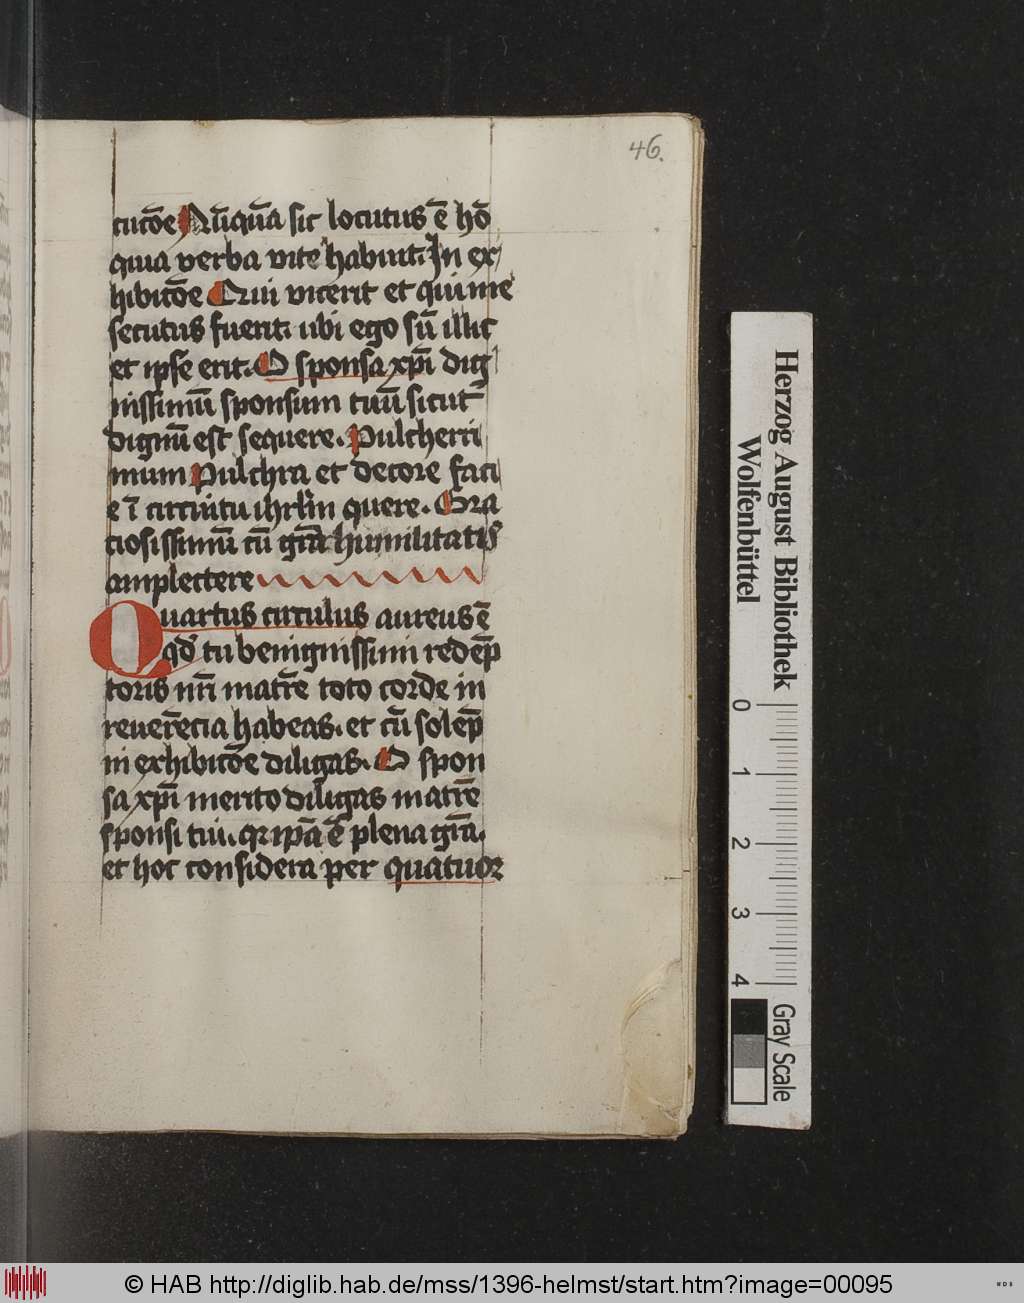 46.
cucōe Nūquā sic locutus ē hō
quia verba vite habuit. In ex
hibicōe Cui vicerit et qui me
secutus fuerit. ubi ego sū illic
et ipse erit. O sponsa xp̄i dig
nissimū sponsum tuū sicut
dignū est sequere. Pulcherri
mum Pulchra et decore faci
e ī circuitu ihrl̄m quere. Gra
ciosissimū cū gr̄a humilitatis
amplectere
Quartus circulus aureus ē
qd̄ tu benignissimi redēp
toris nr̄i matrē toto corde in
reuerēcia habeas. et cū solēp
ni exhibicōe diligas. O spon
sa xp̄i merito diligas matrē
sponsi tui. qr ip̄a ē plena gr̄a.
et hoc considera per quatuor
Herzog August Bibliothek
Wolfenbüttel
0 1 2 3 4
Gray Scale
© HAB http://diglib.hab.de/mss/1396-helmst/start.htm?image=00095
WDB